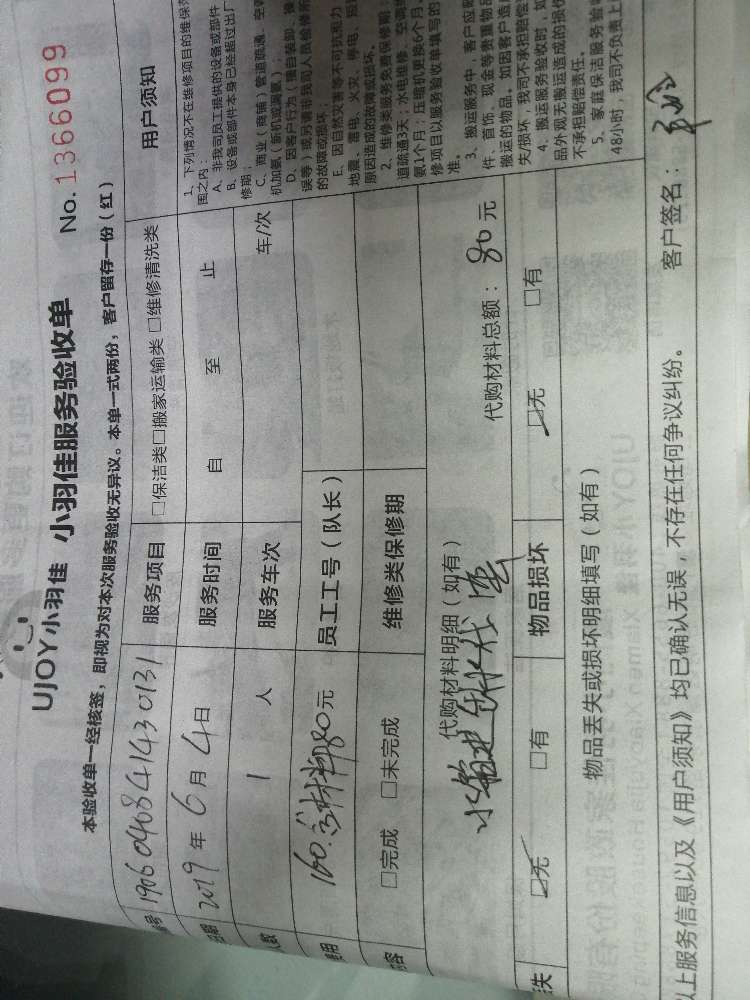 UJOY小羽佳 小羽佳服务验收单
No. 1366099
本验收单一经核签，即视为对本次服务验收无异议。本单一式两份，客户留存一份（红）
号 1906046841430131 服务项目 □保洁类□搬家运输类 □维修清洗类
2019年6月4日 服务时间 自 至 止
人数 1 人 服务车次 车/次
费用 160.含材料80元 员工工号（队长）
内容 □完成 □未完成 维修类保修期
代购材料明细（如有） 代购材料总额：80元
水箱进
失 □无 □有 物品损坏 □无 □有
物品丢失或损坏明细填写（如有）
以上服务信息以及《用户须知》均已确认无误，不存在任何争议纠纷。 客户签名：
用户须知
1、下列情况不在维修项目的维保范
围之内：
A、非我司员工提供的设备或部件
B、设备或部件本身已经超过出厂
修期；
C、商业（商铺）管道疏通、空调
机加氨（新机或漏氨）；
D、因客户行为（擅自装卸、操
误等）或另请非我司人员检修所
的故障或损坏
E、因自然灾害等不可抗拒力
地震、雷电、火灾、停电、短
原因造成的故障或损坏。
2、维修类服务免费保修期：
道疏通3天；水电维修、空调维
氨1个月；压缩机更换6个月
修项目以服务验收单填写的
准。
3、搬运服务中，客户应
件、首饰、现金等贵重物品
搬运的物品。如因客户造
失/损坏，我司不承担赔偿
4、搬运服务验收时，如
品外观无搬运造成的损
不承担赔偿责任。
5、家庭保洁服务验
48小时，我司不负责上